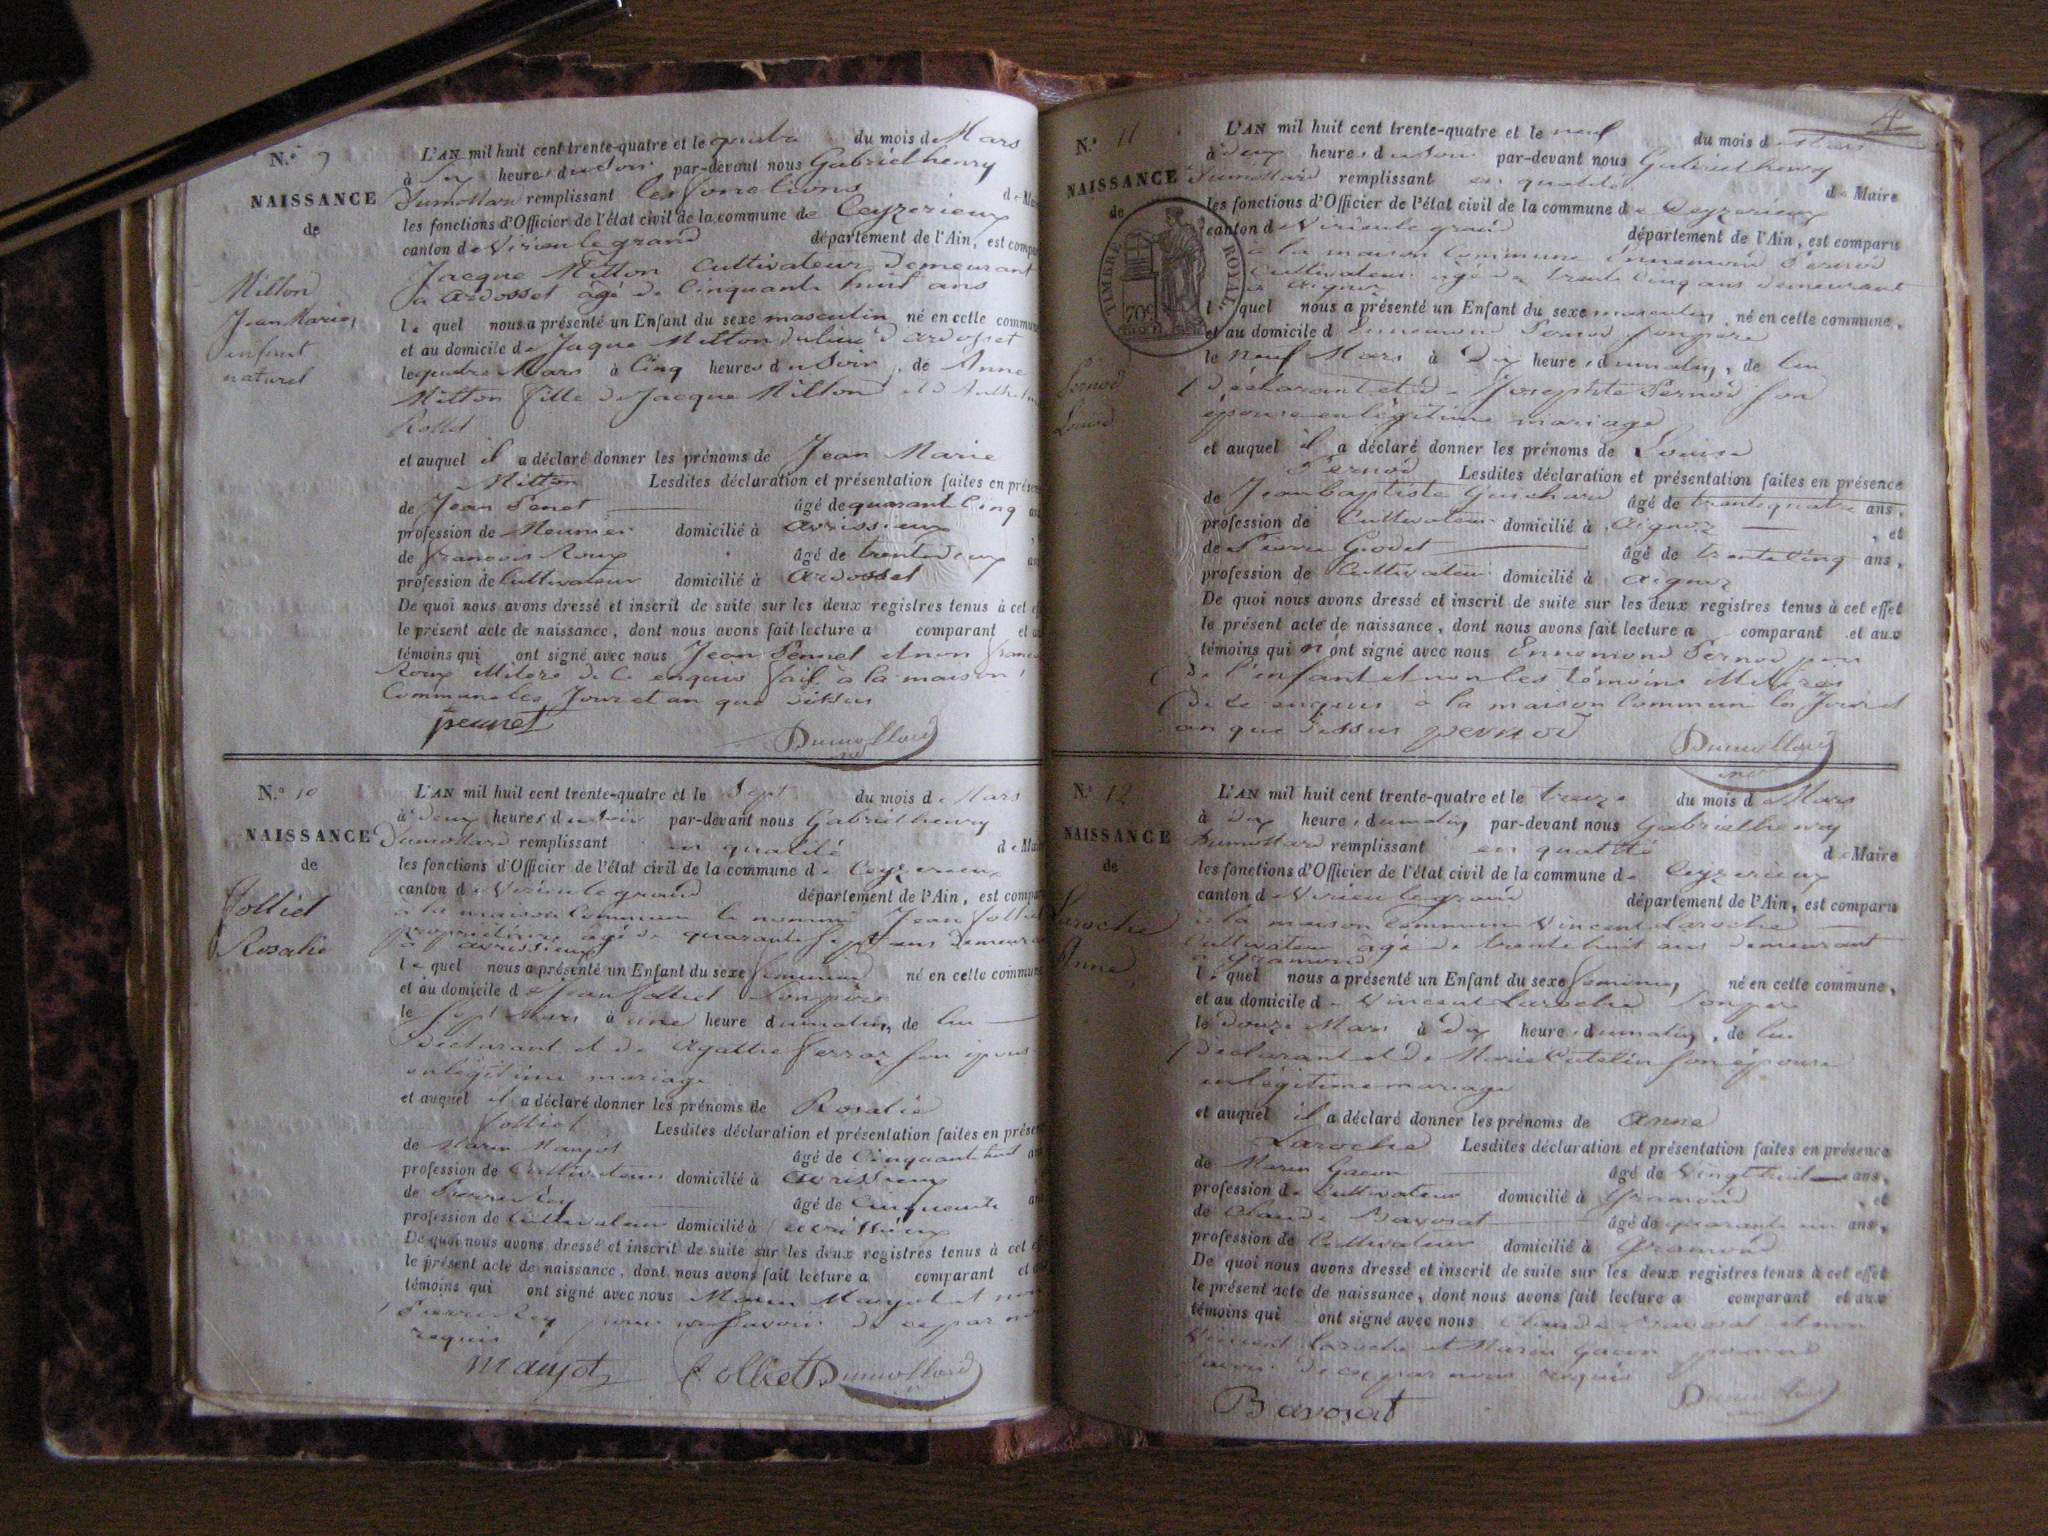 N.º 9
NAISSANCE
de
Mitton
Jean Marie
enfant
naturel
L'AN mil huit cent trente-quatre et le quatre du mois de Mars
à Six heures du Soir par-devant nous Gabriel henry
Dumollard remplissant les fonctions de Maire
les fonctions d'Officier de l'état civil de la commune de Ceyzerieux
canton de Virieu le grand département de l'Ain, est comparu
Jacque Mitton Cultivateur demeurant
à ardosset âgé de Cinquante huit ans
le quel nous a présenté un Enfant du sexe masculin né en cette commune
et au domicile de Jaque Mitton du lieu d'ardosset
le quatre Mars à Cinq heures du Soir, de Anne
Mitton fille de Jacque Mitton et d
Rollet
et auquel il a déclaré donner les prénoms de Jean Marie
Mitton Lesdites déclaration et présentation faites en présence
de Jean Penet âgé de quarant Cinq ans
profession de Meunier domicilié à avrissieux
de francois Roux âgé de trente deux ans
profession de Cultivateur domicilié à ardosset
De quoi nous avons dressé et inscrit de suite sur les deux registres tenus à cet effet
le présent acte de naissance, dont nous avons fait lecture a comparant et aux
témoins qui ont signé avec nous Jean Pennet et non francois
Roux illitéré de Ce enquis fait à la maison
Commune les Jour et an que dessus
pennet Dumollard
N.º 10
NAISSANCE
de
Jolliet
Rosalie
L'AN mil huit cent trente-quatre et le Sept du mois de Mars
à deux heures du soir par-devant nous Gabriel henry
Dumollard remplissant en qualité de Maire
les fonctions d'Officier de l'état civil de la commune de Ceyzerieux
canton de Virieu le grand département de l'Ain, est comparu
à la maison Commune le nommé Jean Jolliet
propriétaire âgé de quarante Sept ans demeurant
à avrissieux
le quel nous a présenté un Enfant du sexe feminin né en cette commune
et au domicile de Jean Jolliet Son père
le Sept Mars à une heure du matin, de lui
déclarant et de Agathe ferraz son épouse
en légitime mariage
et auquel il a déclaré donner les prénoms de Rosalie
Jolliet Lesdites déclaration et présentation faites en présence
de Marin Maujot âgé de Cinquante huit ans
profession de Cultivateur domicilié à avrissieux
de Pierre Rey âgé de Cinquante ans
profession de Cultivateur domicilié à avrissieux
De quoi nous avons dressé et inscrit de suite sur les deux registres tenus à cet effet
le présent acte de naissance, dont nous avons fait lecture a comparant et aux
témoins qui ont signé avec nous Marin Maujot et non
Pierre Rey pour ne Savoir de ce par nous
requis
maujot Jolliet Dumollard
4
N.º 11
NAISSANCE
de
TIMBRE ROYAL
70c
Pernod
Louise
L'AN mil huit cent trente-quatre et le neuf du mois de Mars
à deux heures du Soir par-devant nous Gabriel henry
Dumollard remplissant en qualité de Maire
les fonctions d'Officier de l'état civil de la commune de Ceyzerieux
canton de Virieu le grand département de l'Ain, est comparu
à la maison Commune Ennemond Pernod
Cultivateur agé de trente Cinq ans demeurant
à aignoz
le quel nous a présenté un Enfant du sexe masculin né en cette commune,
et au domicile d Ennemond Pernod son père
le Neuf Mars à Dix heures du matin, de lui
déclarant et de Josephte Pernod son
épouse en légitime mariage
et auquel il a déclaré donner les prénoms de Louise
Pernod Lesdites déclaration et présentation faites en présence
de Jean baptiste Guichard âgé de trente quatre ans,
profession de Cultivateur domicilié à aignoz, et
de Pierre Godet âgé de trente Cinq ans,
profession de Cultivateur domicilié à aignoz
De quoi nous avons dressé et inscrit de suite sur les deux registres tenus à cet effet
le présent acte de naissance, dont nous avons fait lecture a comparant et aux
témoins qui n'ont signé avec nous Ennemond Pernod père
de l'enfant et non les témoins illitérés
de Ce enquis à la maison Commun les Jour et
an que dessus pernod
Dumollard
N.º 12
NAISSANCE
de
Laroche
Anne
L'AN mil huit cent trente-quatre et le treize du mois de Mars
à dix heures du matin par-devant nous Gabriel henry
Dumollard remplissant en qualité de Maire
les fonctions d'Officier de l'état civil de la commune de Ceyzerieux
canton de Virieu le grand département de l'Ain, est comparu
à la maison Commun Vincent Laroche
Cultivateur âgé de trente huit ans demeurant
à Gramond
le quel nous a présenté un Enfant du sexe feminin, né en cette commune,
et au domicile de Vincent Laroche Son père
le douze Mars à Dix heures du matin, de lui
déclarant et de Marie son épouse
en légitime mariage
et auquel il a déclaré donner les prénoms de anne
Laroche Lesdites déclaration et présentation faites en présence
de Marin Gacon âgé de Vingt huit ans,
profession de Cultivateur domicilié à Gramond, et
de Claude Bavosat âgé de quarante un ans,
profession de Cultivateur domicilié à Gramond
De quoi nous avons dressé et inscrit de suite sur les deux registres tenus à cet effet
le présent acte de naissance, dont nous avons fait lecture a comparant et aux
témoins qui ont signé avec nous Claude Bavosat et non
Vincent Laroche et Marin Gacon pour ne
Savoir de ce par nous requis
Bavosat Dumollard